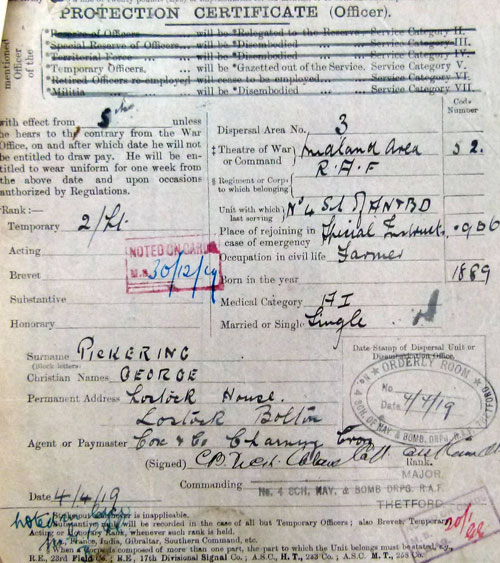 PROTECTION CERTIFICATE (Officer).
above-mentioned
Officer
of the
Reserve of Officers... ... will be *Relegated to the Reserve. Service Category II.
Special Reserve of Officers... will be *Disembodied ... Service Category III.
Territorial Force ... ... will be *Disembodied ... Service Category IV.
*Temporary Officers. ... will be *Gazetted out of the Service. Service Category V.
Retired Officers re-employed will cease to be employed... Service Category VI.
Militia ... ... will be *Disembodied ... Service Category VII.
with effect from 5th unless
he hears to the contrary from the War
Office, on and after which date he will not
be entitled to draw pay. He will be en-
titled to wear uniform for one week from
the above date and upon occasions
authorized by Regulations.
*Rank:—
Temporary 2/Lt.
Acting
Brevet
Substantive
Honorary
NOTED ON CARD
30/12/19
Code
Number
Dispersal Area No. 3
‡Theatre of War or Command } Midland Area 52.
R.A.F
§Regiment or Corps to which belonging }
Unit with which last serving } No 4 Sch of AN & BD
Place of rejoining in case of emergency } Special Instruct. .906
Occupation in civil life Farmer
Born in the year 1889
Medical Category A I
Married or Single Single
Surname PICKERING
(Block letters)
Christian Names GEORGE
Permanent Address Lostock House.
Lostock Bolton
Agent or Paymaster Cox & Co Charing Cross
(Signed)
Rank.
Commanding
MAJOR
No. 4 SCH, NAV. & BOMB DRPG. R.A.F.
THETFORD
Date Stamp of Dispersal Unit or
Disembarkation Office.
ORDERLY ROOM
No.
Date 4/4/19
No. 4 SCH. OF NAV. & BOMB. DRPG. R.A.F. THETFORD.
Date 4/4/19
*Strike out whichever is inapplicable.
Substantive rank will be recorded in the case of all but Temporary Officers; also Brevet, Temporary
Acting or Honorary Rank, whenever such rank is held.
‡i.e., France, India, Gibraltar, Southern Command, etc.
§When a Corps is composed of more than one part, the part to which the Unit belongs must be stated, e.g.,
R.E., 23rd Field Co.; R.E., 17th Divisional Signal Co.; A.S.C., H.T., 243 Co.; A.S.C. M.T., 253 Co.
noted